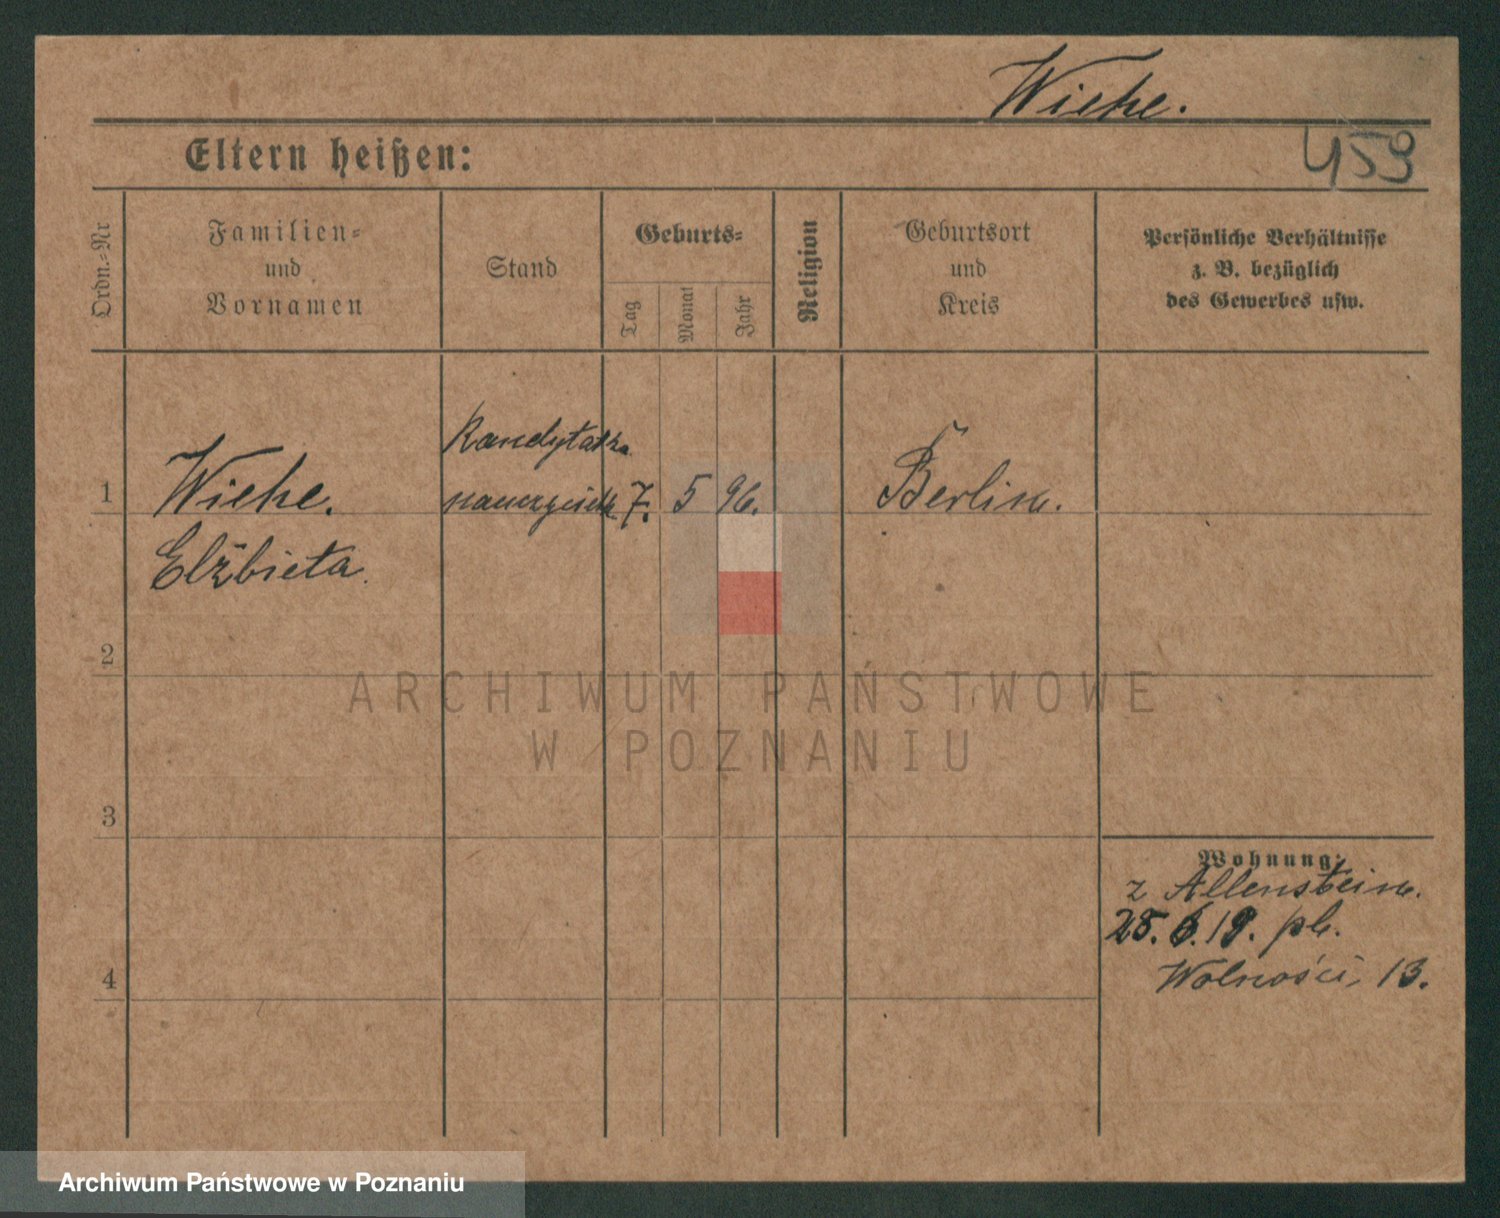 Wiehe.
459
Eltern heißen:
Ordn.-Nr
Familien-
und
Vornamen
Stand
Geburts-
Tag
Monat
Jahr
Religion
Geburtsort
und
Kreis
Persönliche Verhältnisse
z. B. bezüglich
des Gewerbes usw.
Kandydatka
1 Wiehe. nauczyciel. 7. 5 96. Berlin.
Elżbieta.
2
ARCHIWUM PAŃSTWOWE
W POZNANIU
3
Wohnung:
z Allenstein.
28. 6. 19. pl.
4
Wolności, 13.
Archiwum Państwowe w Poznaniu